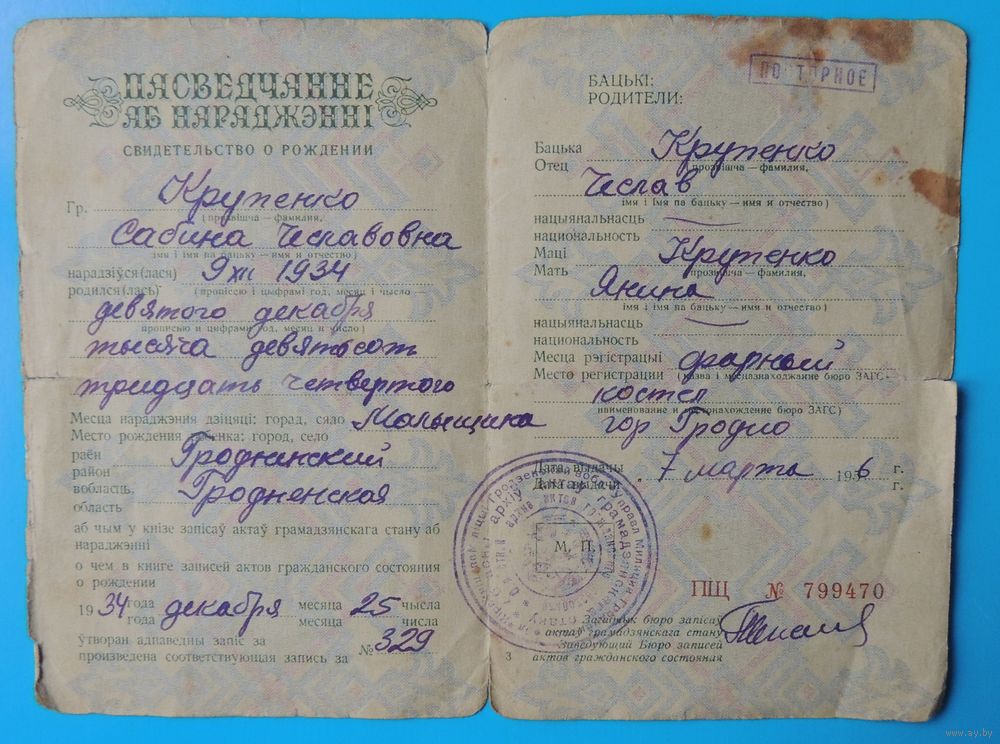 ПАСВЕДЧАННЕ
АБ НАРАДЖЭННІ
СВИДЕТЕЛЬСТВО О РОЖДЕНИИ
Гр. Крупенко
(прозвішча — фамилия,
Сабина Чеславовна
імя і імя па бацьку — имя и отчество)
нарадзіўся(лася) 9 XII 1934
родился(лась) (прописсю і цыфрамі год, месяц і чысло
девятого декабря
прописью и цифрами год, месяц и число)
тысяча девятьсот
тридцать четвертого
Месца нараджэння дзіцяці: горад, сяло Малыщина
Место рождения ребенка: город, село
раён Гродненский
район
вобласць Гродненская
область
аб чым у кнізе запісаў актаў грамадзянскага стану аб
нараджэнні
о чем в книге записей актов гражданского состояния
о рождении
19 34 года декабря месяца 25 чысла
года месяца числа
ўтворан адпаведны запіс за
произведена соответствующая запись за № 329
ПОВТОРНОЕ
БАЦЬКІ:
РОДИТЕЛИ:
Бацька Крупенко
Отец (прозвішча — фамилия,
Чеслав
імя і імя па бацьку — имя и отчество)
нацыянальнасць
национальность
Маці Крупенко
Мать прозвішча — фамилия,
Янина
імя і імя па бацьку — имя и отчество)
нацыянальнасць
национальность
Месца рэгістрацыі фарный
Место регистрации (назва і месцазнаходжанне бюро ЗАГС-
костел
наименование и местонахождение бюро ЗАГС)
гор Гродно
Дата выдачы 7 марта 1956 г.
Дата выдачи г.
М. П.
ПЩ № 799470
Загадчык бюро запісаў
актаў грамадзянскага стану
Заведующий Бюро записей
3 актов гражданского состояния
www.ay.by